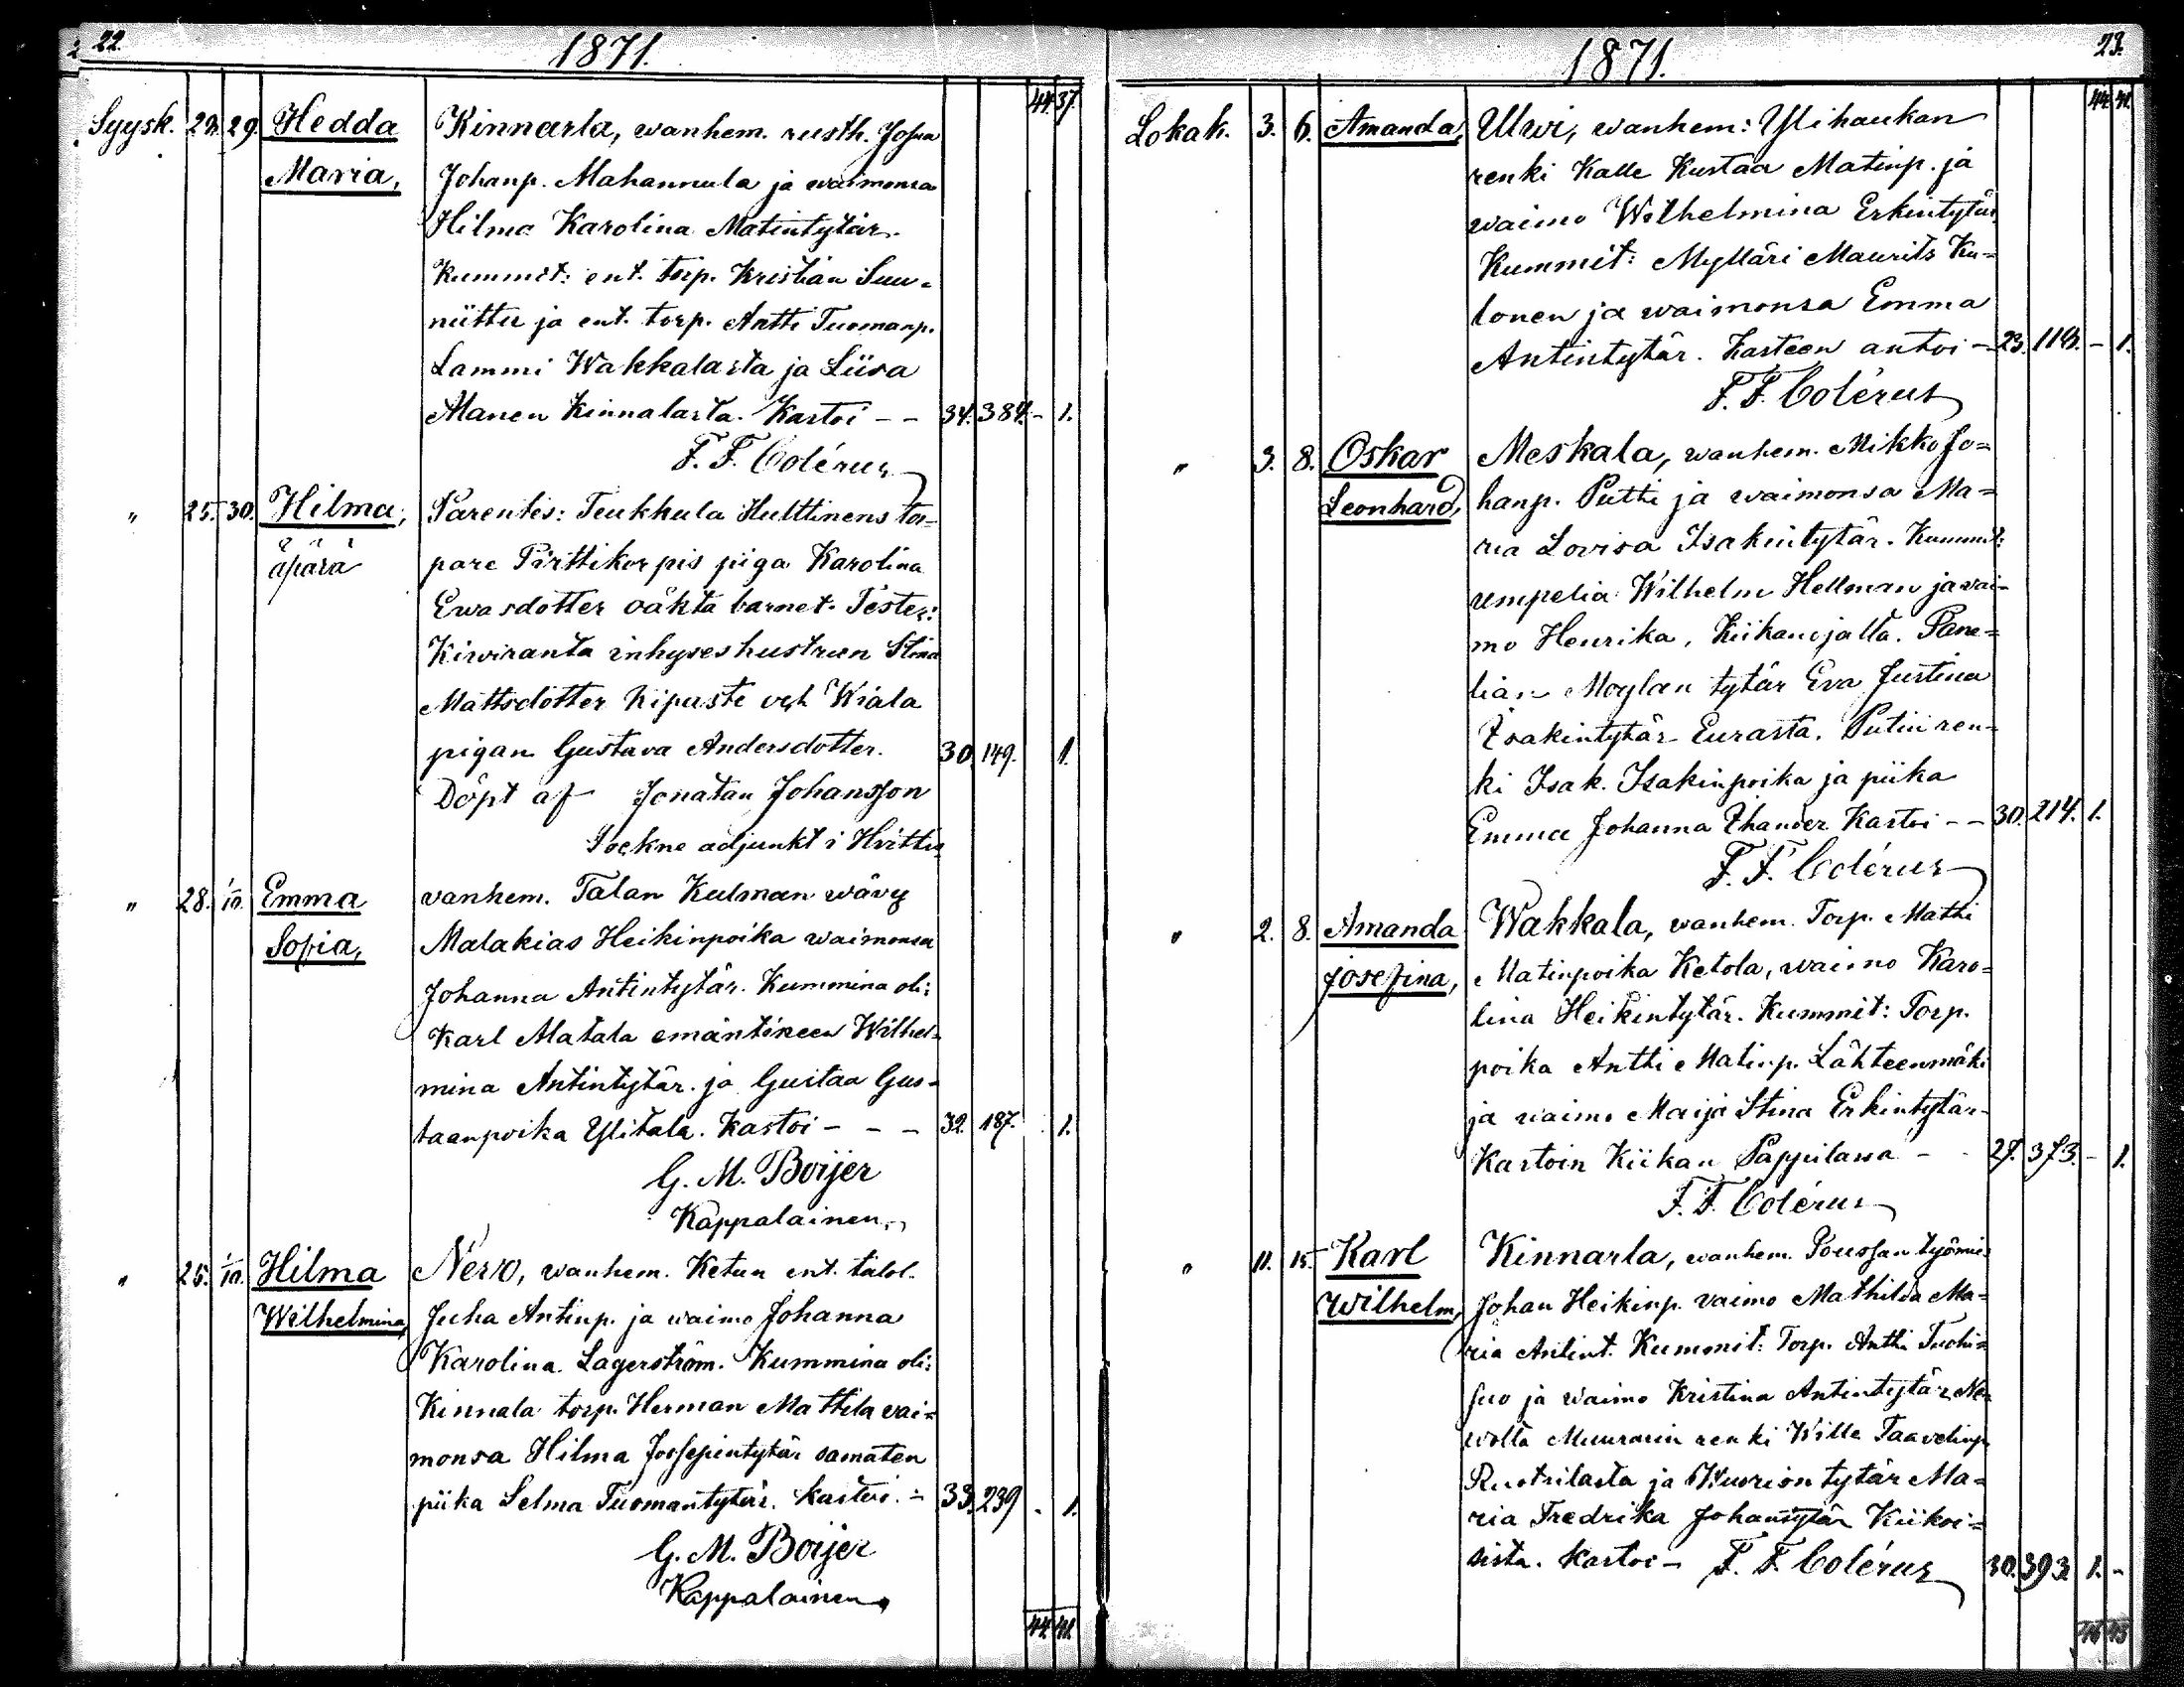 22.
1871.
44. 37.
Syysk. 29. Hedda Kinnarla, wanhem. rusth.
Maria, Johanp. Mahannula ja waimonsa
Hilma Karolina Matintytär.
Kummit: ent. torp. Kristian Suu-
niittu ja ent. torp. Antti Tuomanp.
Lammi Wakkalasta ja Liisa
Manen Kinnalasta. Kastoi - - 34. 384. - 1.
F. F. Colérus
" 25. 30. Hilma, Parentes: Teukkula Hulttinens tor-
äpärä pare Pirttikorpis piga Karolina
Ewasdotter oäkta barnet. Testes:
Kiwiranta inhyseshustrun Stina
Mattsdotter Kipaste och Wiala
pigan Gustava Andersdotter. 30. 149. 1.
Döpt af Jonatan Johansson
Sockne adjunkt i Hvittis
" 28. 1/10. Emma vanhem. Talan Kulman wävy
Sofia, Malakias Heikinpoika waimonsa
Johanna Antintytär. Kummina oli:
Karl Matala emäntineen Wilhel-
mina Antintytär. ja Gustaa Gus-
taanpoika Ylitala. Kastoi - - - 32. 187. 1.
G. M. Boijer
Kappalainen.
" 25. 1/10. Hilma Nerwo, wanhem. Ketun ent. talol.
Wilhelmina, Juha Antinp. ja waimo Johanna
Karolina Lagerström. Kummina oli:
Kinnala torp. Herman Mattila vai-
monsa Hilma Joosepintytär samaten
piika Selma Tuomantytär. Kastoi. - 33. 239 - 1.
G. M. Boijer
Kappalainen
44. 41.
1871.
23.
44. 41.
Lokak. 3. 6. Amanda, Ulwi, wanhem: Ylihaukan
renki Kalle Kustaa Matinp. ja
waimo Wilhelmina Erkintytär
Kummit: Mylläri Maurits Ku-
lonen ja waimonsa Emma
Antintytär. Kasteen antoi - 23. - 1.
F. F. Colérus
" 3. 8. Oskar Meskala, wanhem. Mikko Jo-
Leonhard, hanp. Putti ja waimonsa Ma-
ria Lovisa Isakintytär. Kummit:
umpelia Wilhelm Hellman ja wai-
mo Henrika, Kiikanojalta. Pane-
lian Moylan tytär Eva Justina
Isakintytär Eurasta. Putin ren-
ki Isak Isakinpoika ja piika
Emma Johanna Thander Kastoi - - 30. 214. 1.
F. F. Colérus
" 2. 8. Amanda Wakkala, wanhem. Torp. Matti
Josefina, Matinpoika Ketola, waimo Karo-
lina Heikintytär. Kummit: Torp.
poika Antti Matinp. Lähteenmäki
ja waimo Maija Stina Erkintytär
Kastoin Kiikan Pappilassa - 27. 373. - 1.
F. F. Colérus
" 11. 15. Karl Kinnarla, wanhem. Poussan työmies
Wilhelm, Johan Heikinp. vaimo Mathilda Ma-
ria Antint. Kummit: Torp. Antti Tuohi-
suo ja waimo Kristina Antintytär Ner-
wolta Muurarin renki Wille Taavetinp.
Ruotsilasta ja Wuorion tytär Ma-
ria Fredrika Johantytär Kiikoi-
sista. Kastoi - F. F. Colérus 30. 393 1. -